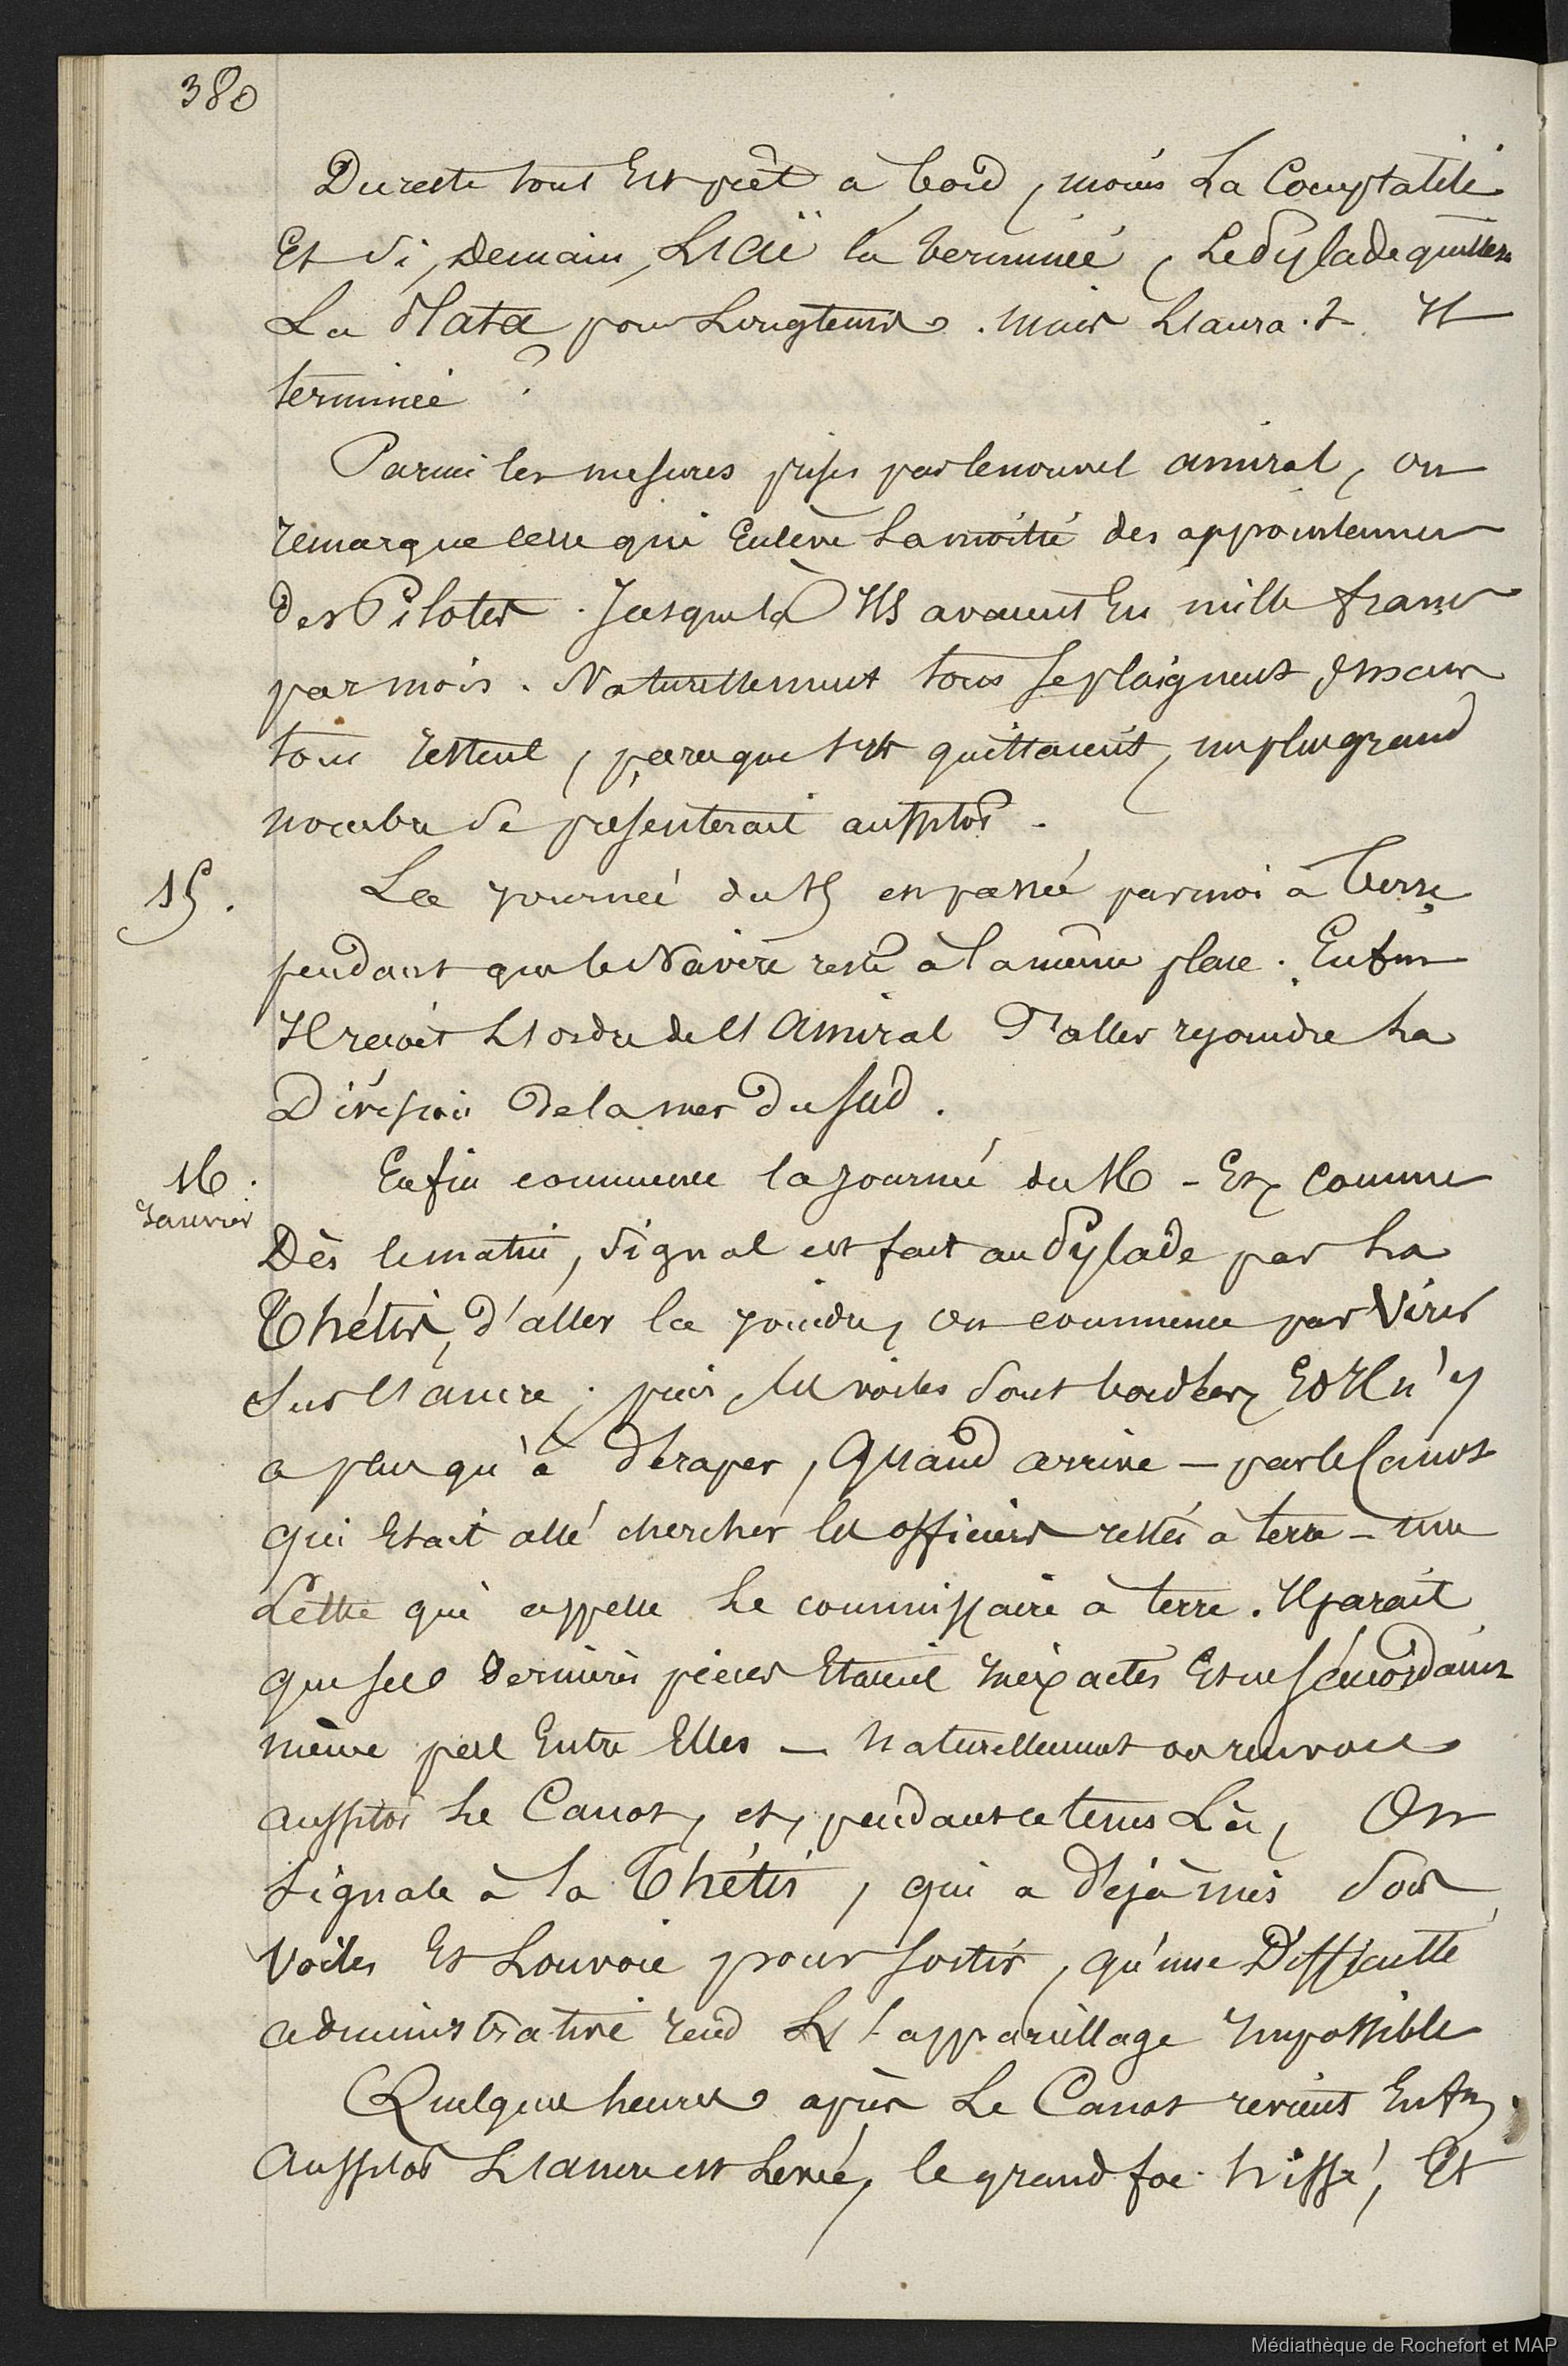 380
Du reste tout Est prêt a bord, moins La Comptabilité
Et si, Demain, L'a la terminée, Le Pylade quittera
La Plata pour Longtems. Mais L'aura-t-Il
terminée ?
Parmi les mesures prises par le nouvel amiral, on
remarque celle qui Enlève La moitié des appointemens
des Pilotes. Jusque là Ils avaient Eu mille francs
par mois. Naturellement tous se plaignent, mais
tous restent, parce que s'ils quittaient, un plus grand
nombre se présenterait aussitôt.
15.
La journée du 15 est passée par moi à Terre
pendant que le Navire reste à la même place. Enfin
Il reçoit L'ordre de l'Amiral d'aller rejoindre La
Division de la mer du Sud.
16.
Janvier
Enfin commence la journée du 16 - Et, comme
Dès le matin, signal est fait au Pylade par La
Thétis, d'aller la joindre, on commence par Virer
Sur l'ancre ; puis les voiles sont bordées, Et Il n'y
a plus qu'à déraper, quand arrive — par le Canot
qui Etait allé chercher les officiers restés à terre — une
Lettre qui appelle Le commissaire à terre. Il parait
que ses dernières pièces Etaient inexactes Et ne s'accordaient
même pas Entre Elles — Naturellement on renvoie
aussitôt Le Canot, et, pendant ce tems Là, On
signale à la Thétis, qui a déjà mis Sous
Voiles Et Louvoie pour sortir, qu'une Difficulté
administrative rend l'appareillage Impossible
Quelques heures après Le Canot revient Enfin,
Aussitôt L'ancre est Levée, le grand foc hissé, Et
Médiathèque de Rochefort et MAP